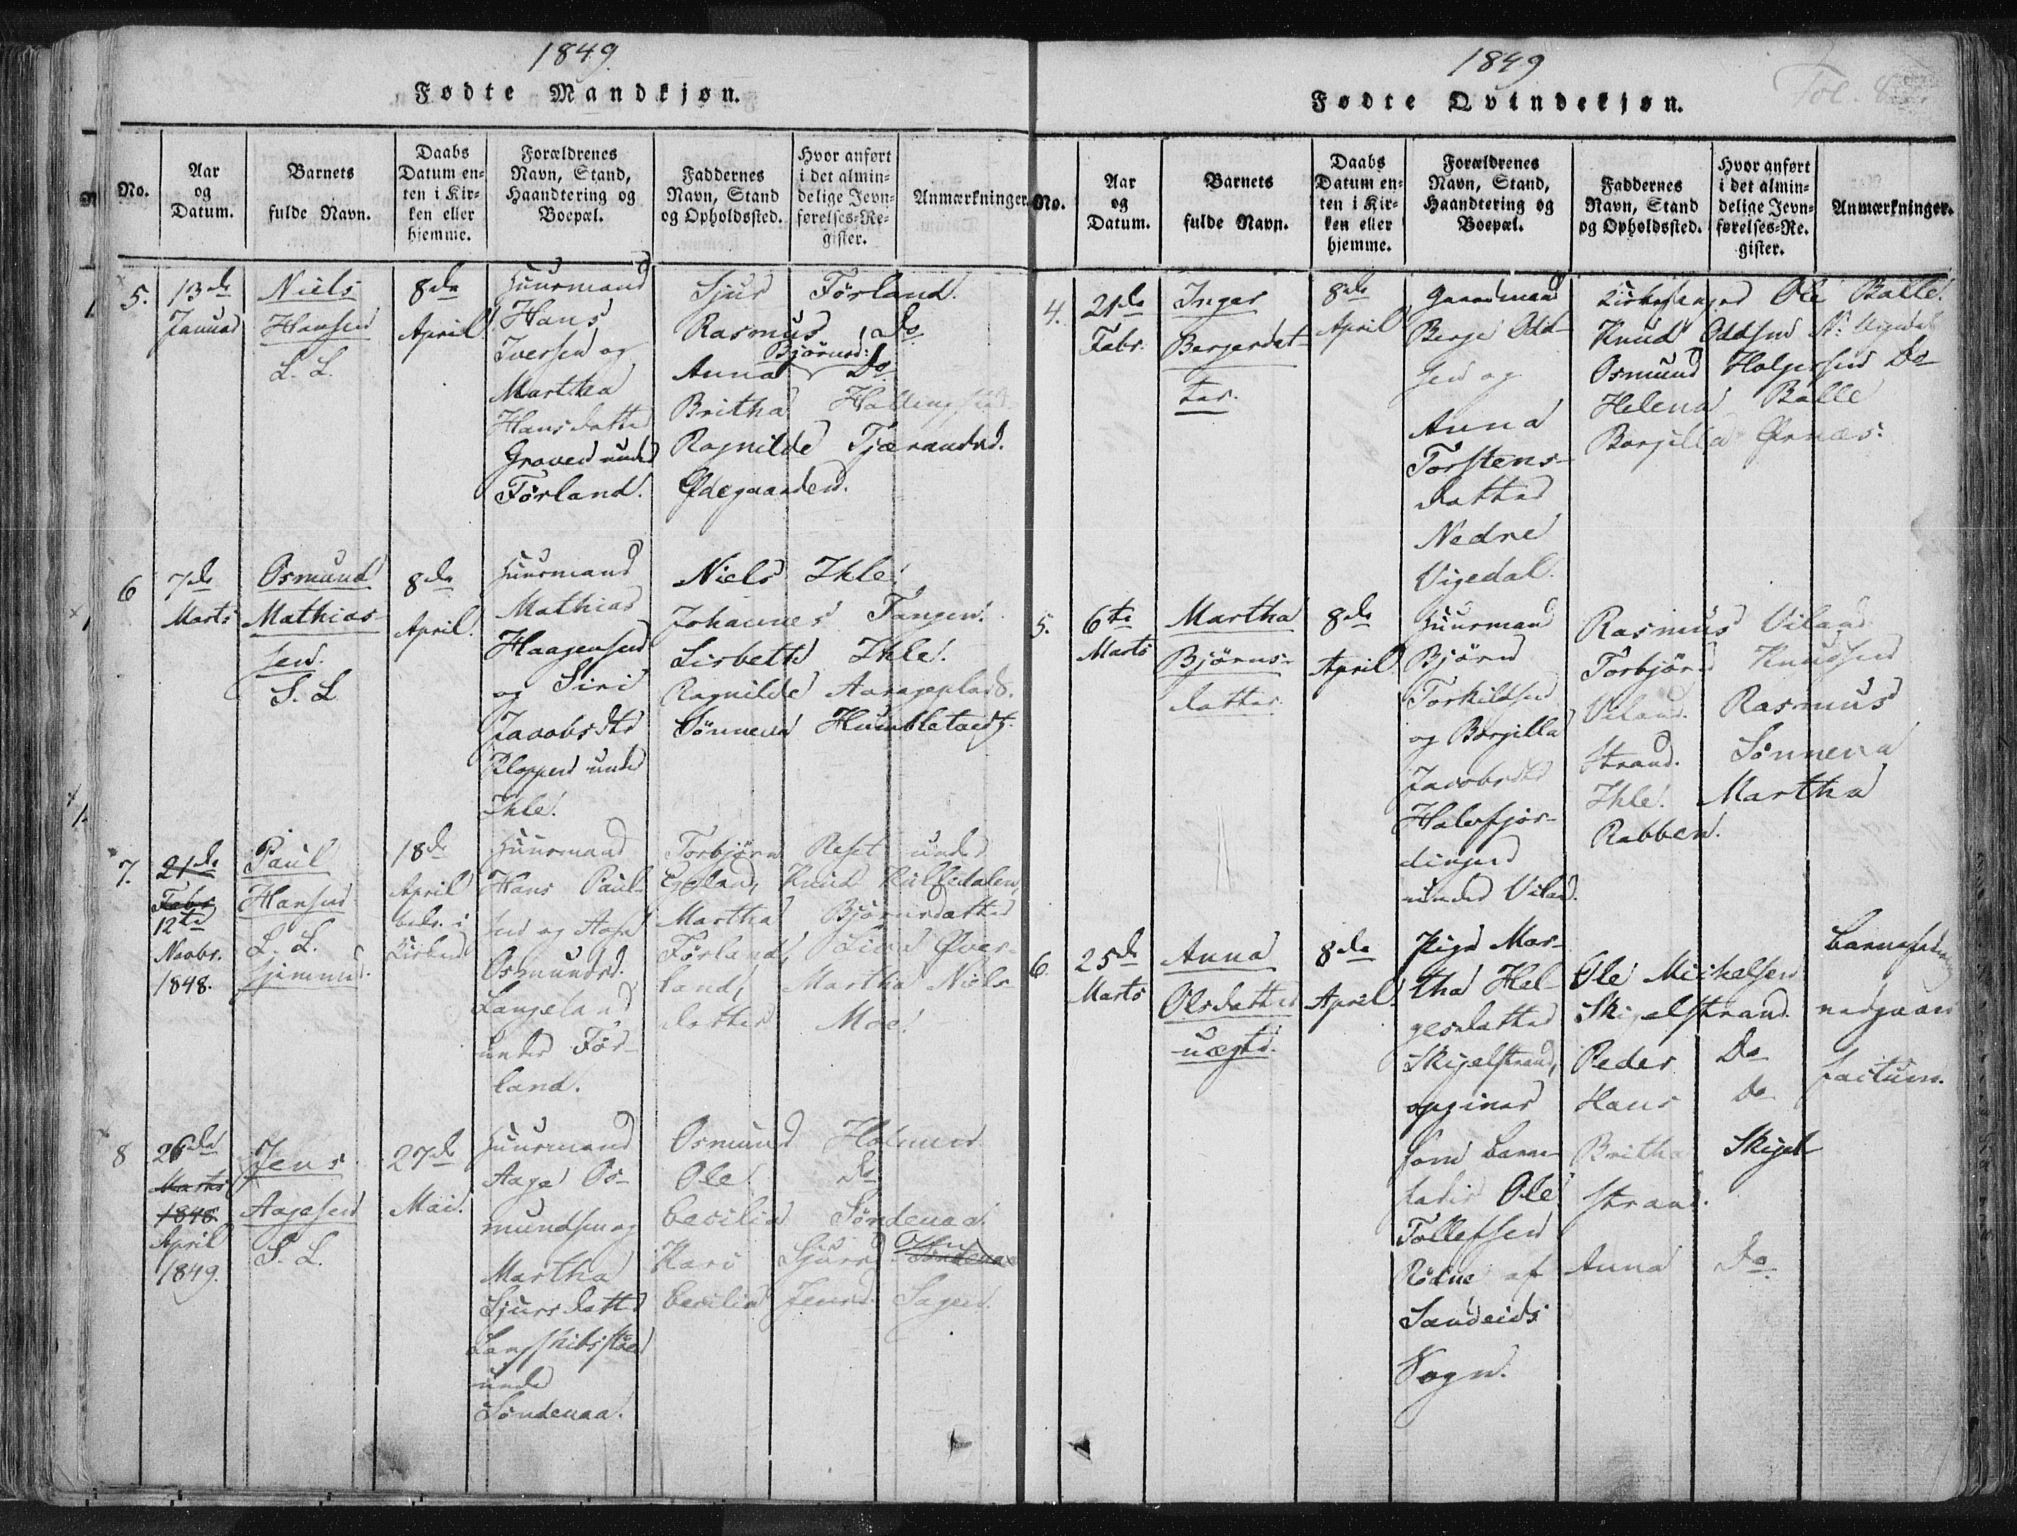 1849
Fødte Mandkjøn.
No.
Aar
og
Datum.
Barnets
fulde Navn.
Daabs
Datum en-
ten i Kir-
ken eller
hjemme.
Forældrenes
Navn, Stand,
Haandtering og
Boepæl.
Faddernes
Navn, Stand
og Opholdssted.
Hvor anført
i det almin-
delige Jevn-
førelses-Re-
gister.
Anmærkninger.
5.
13de
Januar
Niels
Hansen
L. L.
8de
April
Huusmand
Hans
Iversen og
Martha
Hansdatter
Graven under
Førland.
Sjur Førland.
Rasmus Do
Anna Bjørnsd: Do
Britha
Ragnilde
Ødegaarden.
6
7de
Marts
Osmund
Mathias-
sen.
S. L
8de
April.
Huusmand
Mathias
Haagensen
og Siri
Jacobsdtr
under
Ihle.
Niels Ihle.
Johannes Tangen.
Lisbeth Ihle.
Ragnilde
Sønneva
7.
21de
Febr
12te
Novbr.
1848.
Paul
Hansen
L. L.
hjemme.
18de
April
i
Kirken
Huusmand
Hans Paul-
sen og Aasa
Osmundsd.
Langeland
under Før-
land.
Torbjørn under
Knud
Martha Bjørnsdatter
Førland, Øver-
land, Martha Niels-
datter Moe.
8
26de
Marts
1848
April
1849.
Jens
Aagesen
S. L.
27de
Mai.
Huusmand
Aage Os-
mundsen og
Martha
Sjursdatter
under
Søndenaa.
Osmund
Ole Do
Cecilia Søndenaa
Kari Søndenaa
Cecilia
1849
Fødte Qvindekjøn.
Fol.
No.
Aar
og
Datum.
Barnets
fulde Navn.
Daabs
Datum en-
ten i Kir-
ken eller
hjemme.
Forældrenes
Navn, Stand,
Haandtering og
Boepæl.
Faddernes
Navn, Stand
og Opholdssted.
Hvor anført
i det almin-
delige Jevn-
førelses-Re-
gister.
Anmærkninger.
4.
21de
Febr.
Inger
Bergesdat-
ter.
8de
April
Gaardmand
Berge Odd-
sen og
Anna
Torstens-
datter
Nedre
Vigedal.
Kirkesanger Ole Balle.
Knud Oddsen N. Vigedal
Osmund Holgersen Do
Helena Balle
Borgilla Ørnæs.
5.
6te
Marts
Martha
Bjørns-
datter.
8de
April
Huusmand
Bjørn
Torkildsen
og Borgilla
Jacobsdtr
Halvfjor-
dingen
under Viland.
Rasmus Viland
Torbjørn Knudsen
Viland. Rasmus
Strand. Sønneva
Ihle. Martha
Rabben.
6.
25de
Marts
Anna
Olsdatter
uægte.
8de
April.
Pige Mar-
tha Hel-
gesdatter
Skigelstrand,
opgiver
som Barne-
fader Ole
Tollefsen
Rødne af
Sandeids
Sogn.
Ole Mickelsen
Skigelstrand.
Peder Do
Hans Do
Britha Skigel-
strand.
Anna Do
Barnefaderen
vedgaaer
factum.